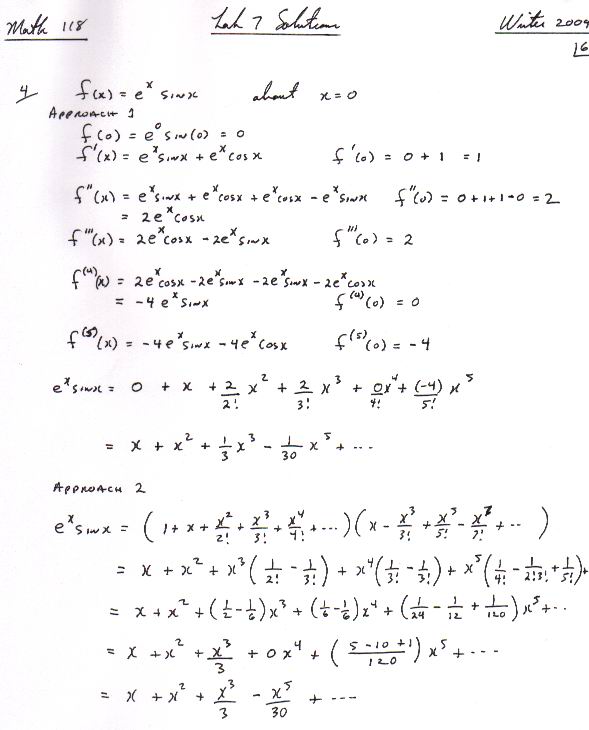 Math 118 Lab 7 Solutions Winter 2009
16
4/ f(x) = e^x sin x about x = 0
APPROACH 1
f(0) = e^0 sin(0) = 0
f'(x) = e^x sin x + e^x cos x f'(0) = 0 + 1 = 1
f''(x) = e^x sin x + e^x cos x + e^x cos x - e^x sin x f''(0) = 0+1+1-0 = 2
= 2e^x cos x
f'''(x) = 2e^x cos x - 2e^x sin x f'''(0) = 2
f^(4)(x) = 2e^x cos x - 2e^x sin x - 2e^x sin x - 2e^x cos x
= -4 e^x sin x f^(4)(0) = 0
f^(5)(x) = -4e^x sin x - 4e^x cos x f^(5)(0) = -4
e^x sin x = 0 + x + 2/2! x^2 + 2/3! x^3 + 0x^4/4! + (-4)/5! x^5
= x + x^2 + 1/3 x^3 - 1/30 x^5 + ...
APPROACH 2
e^x sin x = (1 + x + x^2/2! + x^3/3! + x^4/4! + ...)(x - x^3/3! + x^5/5! - x^7/7! + ...)
= x + x^2 + x^3(1/2! - 1/3!) + x^4(1/3! - 1/3!) + x^5(1/4! - 1/2!3! + 1/5!)+
= x + x^2 + (1/2 - 1/6)x^3 + (1/6 - 1/6)x^4 + (1/24 - 1/12 + 1/120)x^5 + ...
= x + x^2 + x^3/3 + 0x^4 + ((5-10+1)/120) x^5 + ...
= x + x^2 + x^3/3 - x^5/30 + ...